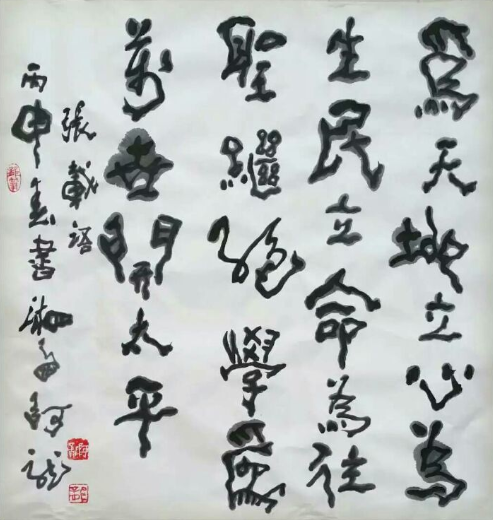 為天地立心為
生民立命為往
聖繼絕學為
萬世開太平
張載語
丙申春書